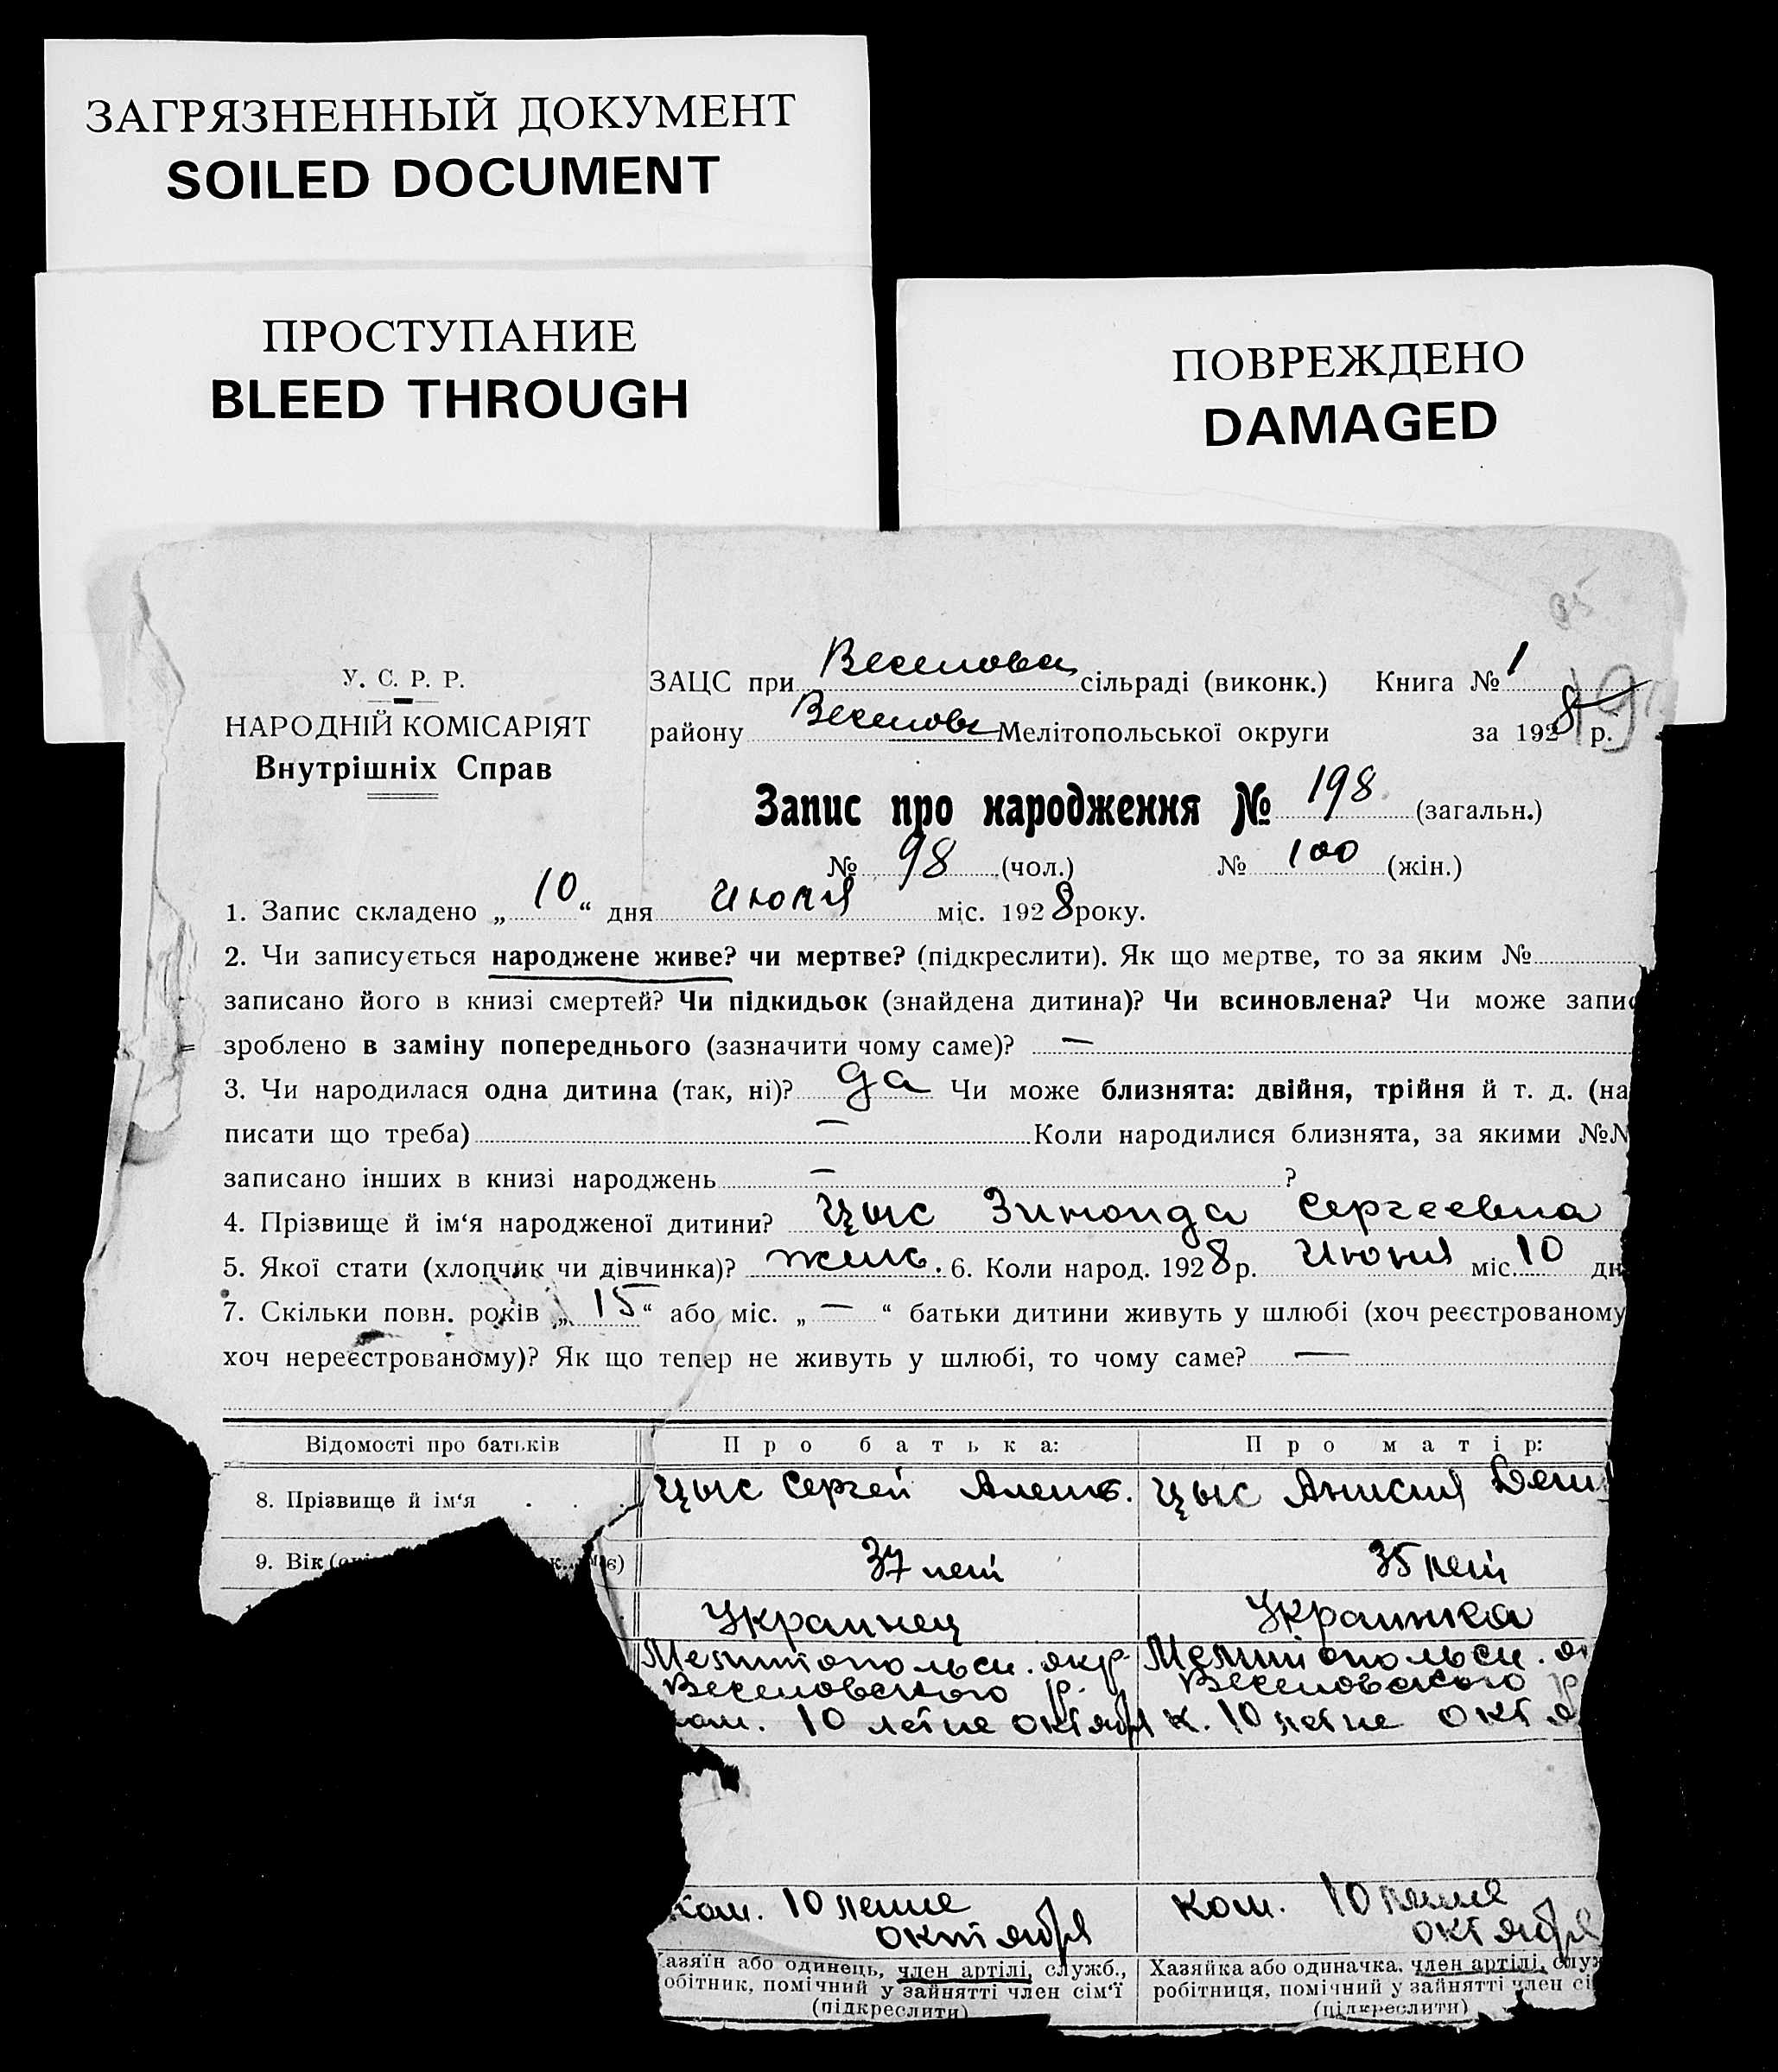 ЗАГРЯЗНЕННЫЙ ДОКУМЕНТ
SOILED DOCUMENT
ПРОСТУПАНИЕ
BLEED THROUGH
ПОВРЕЖДЕНО
DAMAGED
У. С. Р. Р.
НАРОДНІЙ КОМІСАРІЯТ
Внутрішніх Справ
ЗАЦС при сільраді (виконк.) Книга № 1
району Мелітопольської округи за 1928 р.
Запис про народження № 198 (загальн.)
№ 98 (чол.) № 100 (жін.)
1. Запис складено „ 10 “ дня міс. 1928 року.
2. Чи записується народжене живе? чи мертве? (підкреслити). Як що мертве, то за яким №
записано його в книзі смертей? Чи підкидьок (знайдена дитина)? Чи всиновлена? Чи може запис
зроблено в заміну попереднього (зазначити чому саме)? —
3. Чи народилася одна дитина (так, ні)? да Чи може близнята: двійня, трійня й т. д. (на
писати що треба) — Коли народилися близнята, за якими №№
записано інших в книзі народжень — ?
4. Прізвище й ім‘я народженої дитини? Цыс Сергеевна
5. Якої стати (хлопчик чи дівчинка)? женс. 6. Коли народ. 1928 р. Июня міс. 10 дн
7. Скільки повн. років „ 15 “ або міс. „ — “ батьки дитини живуть у шлюбі (хоч реєстрованому
хоч нереєстрованому)? Як що тепер не живуть у шлюбі, то чому саме? —
Відомості про батьків Про батька: Про матір:
8. Прізвище й ім‘я . . . Цыс Сергей Алекс. Цыс Анисия
9. Вік 37 лет 35 лет
Украинец Украинка
Мелитопольск. окр. Мелитопольск.
Веселовского р. Веселовского р
ком. 10 летие октября к. 10 летие окт
ком. 10 летие ком. 10 летие
октября октября
азяїн або одинець, член артілі, служб., Хазяйка або одиначка, член артілі, служ
обітник, помічний у зайнятті член сім‘ї робітниця, помічний у зайнятті член сі
(підкреслити) (підкреслити)